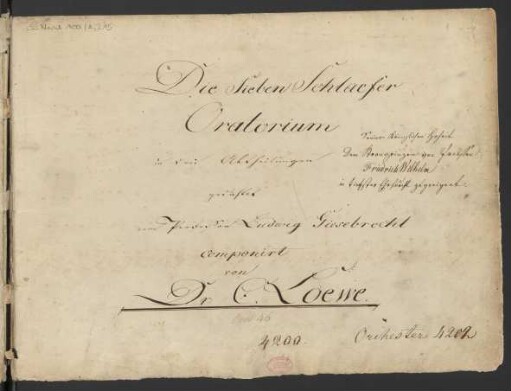 Die sieben Schlaefer
Oratorium
in drei Abtheilungen
Seiner Königlichen Hoheit
Dem Kronprinzen von Preußen
Friedrich Wilhelm
in tiefster Ehrfurcht zugeeignet
gedichtet
vom Professor Ludwig Giesebrecht
componirt
von
Dr. C. Loewe.
Opus 46
4200.
Orchester 4202